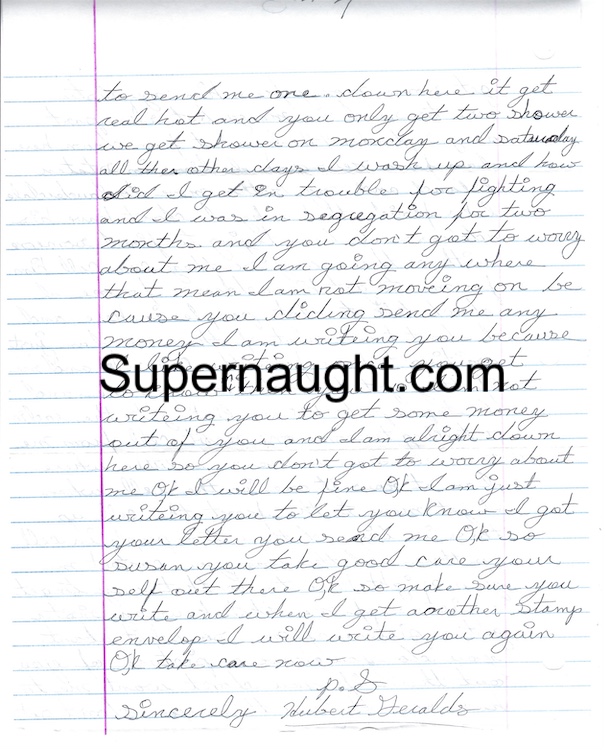 to send me one. down here it get
real hot and you only get two shower
we get shower on monday and satauday
all thes other days I wash up and how
did I get in trouble for fighting
and I was in segregation for two
months and you don't got to worry
about me I am going any where
that mean I am not moveing on be
cause you diding send me any
money I am writeing you because
I like writing you get
Supernaught.com
to know not
writeing you to get some money
out of you and I am alright down
here so you don't got to worry about
me Ok I will be fine Ok I am just
writeing you to let you know I got
your letter you send me Ok so
susan you take good care your
self out there Ok so make sure you
write and when I get another stamp
envelop I will write you again
Ok take care now
p.S
Sincerely Hubert Geralds